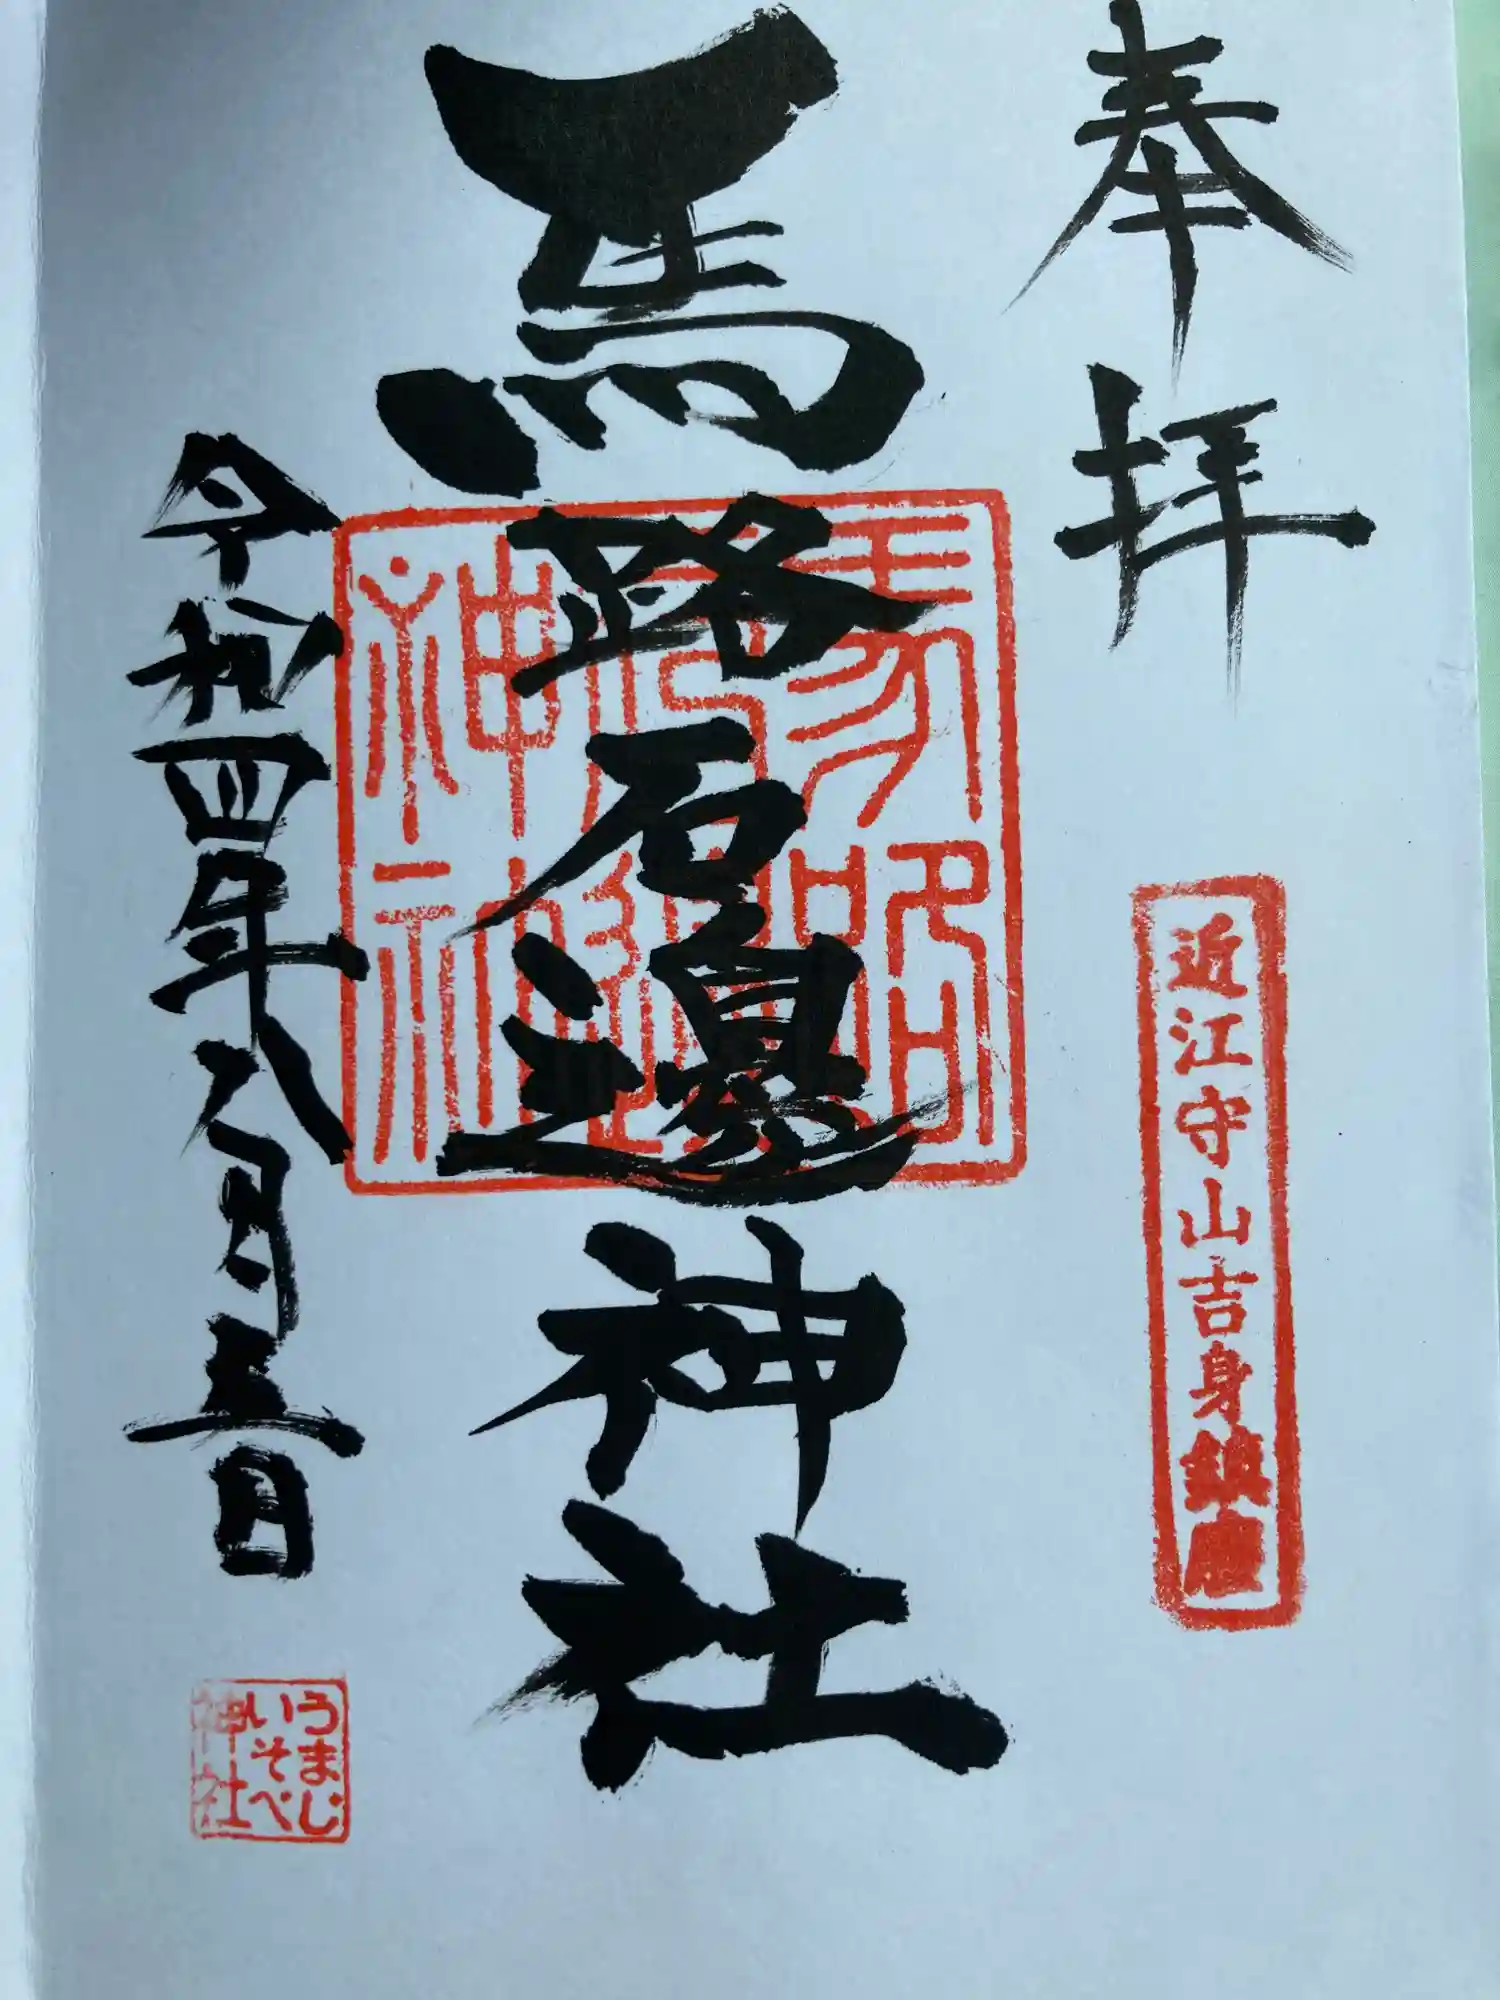 奉拝
近江守山吉身鎮座
馬路石邊神社
馬路石邊神社
令和四年八月三日
うまじ
いそべ
神社